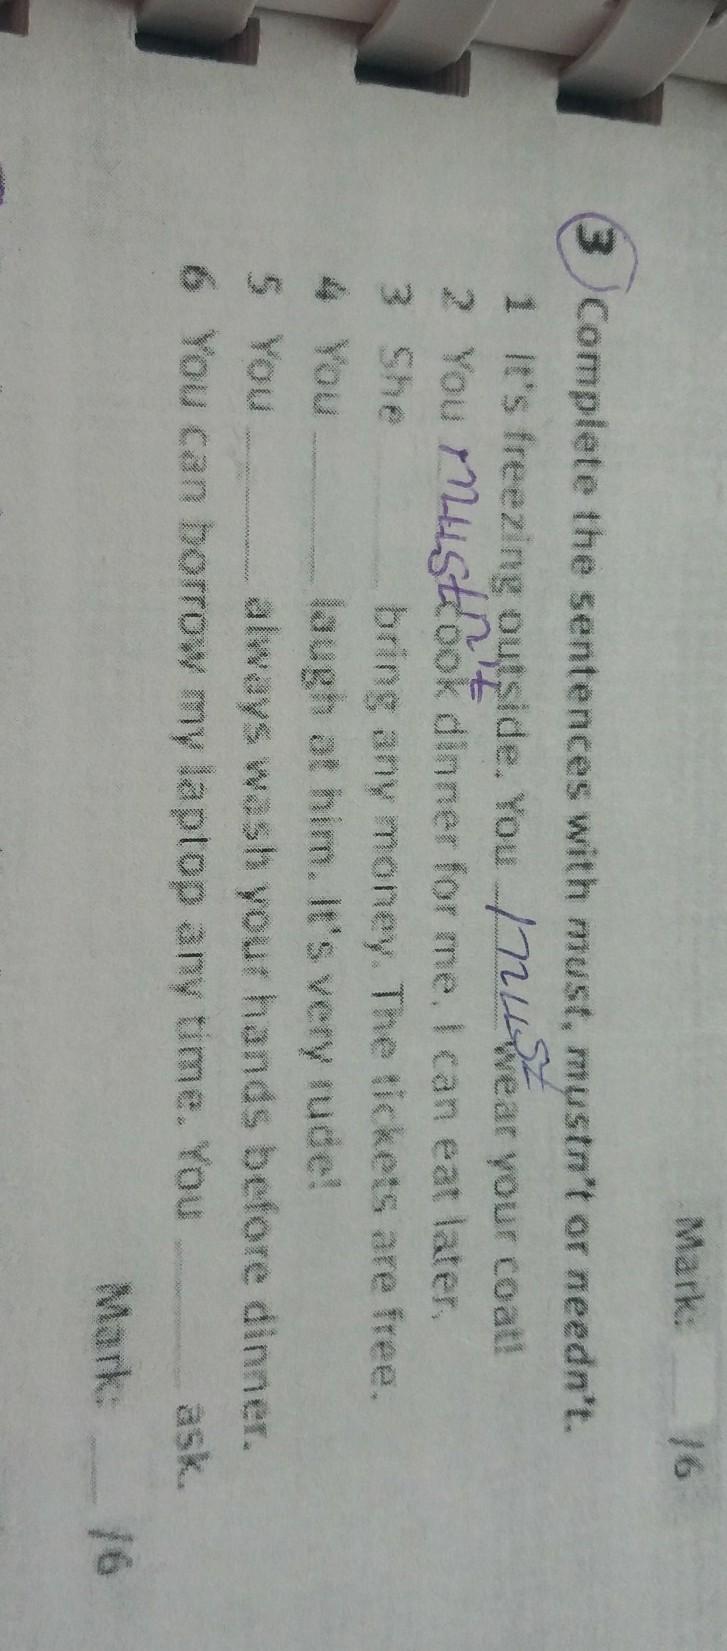 Mark: ___ /6
3 Complete the sentences with must, mustn't or needn't.
1 It's freezing outside. You must wear your coat!
2 You mustn't cook dinner for me. I can eat later.
3 She ______ bring any money. The tickets are free.
4 You ______ laugh at him. It's very rude!
5 You ______ always wash your hands before dinner.
6 You can borrow my laptop any time. You ______ ask.
Mark: ___ /6